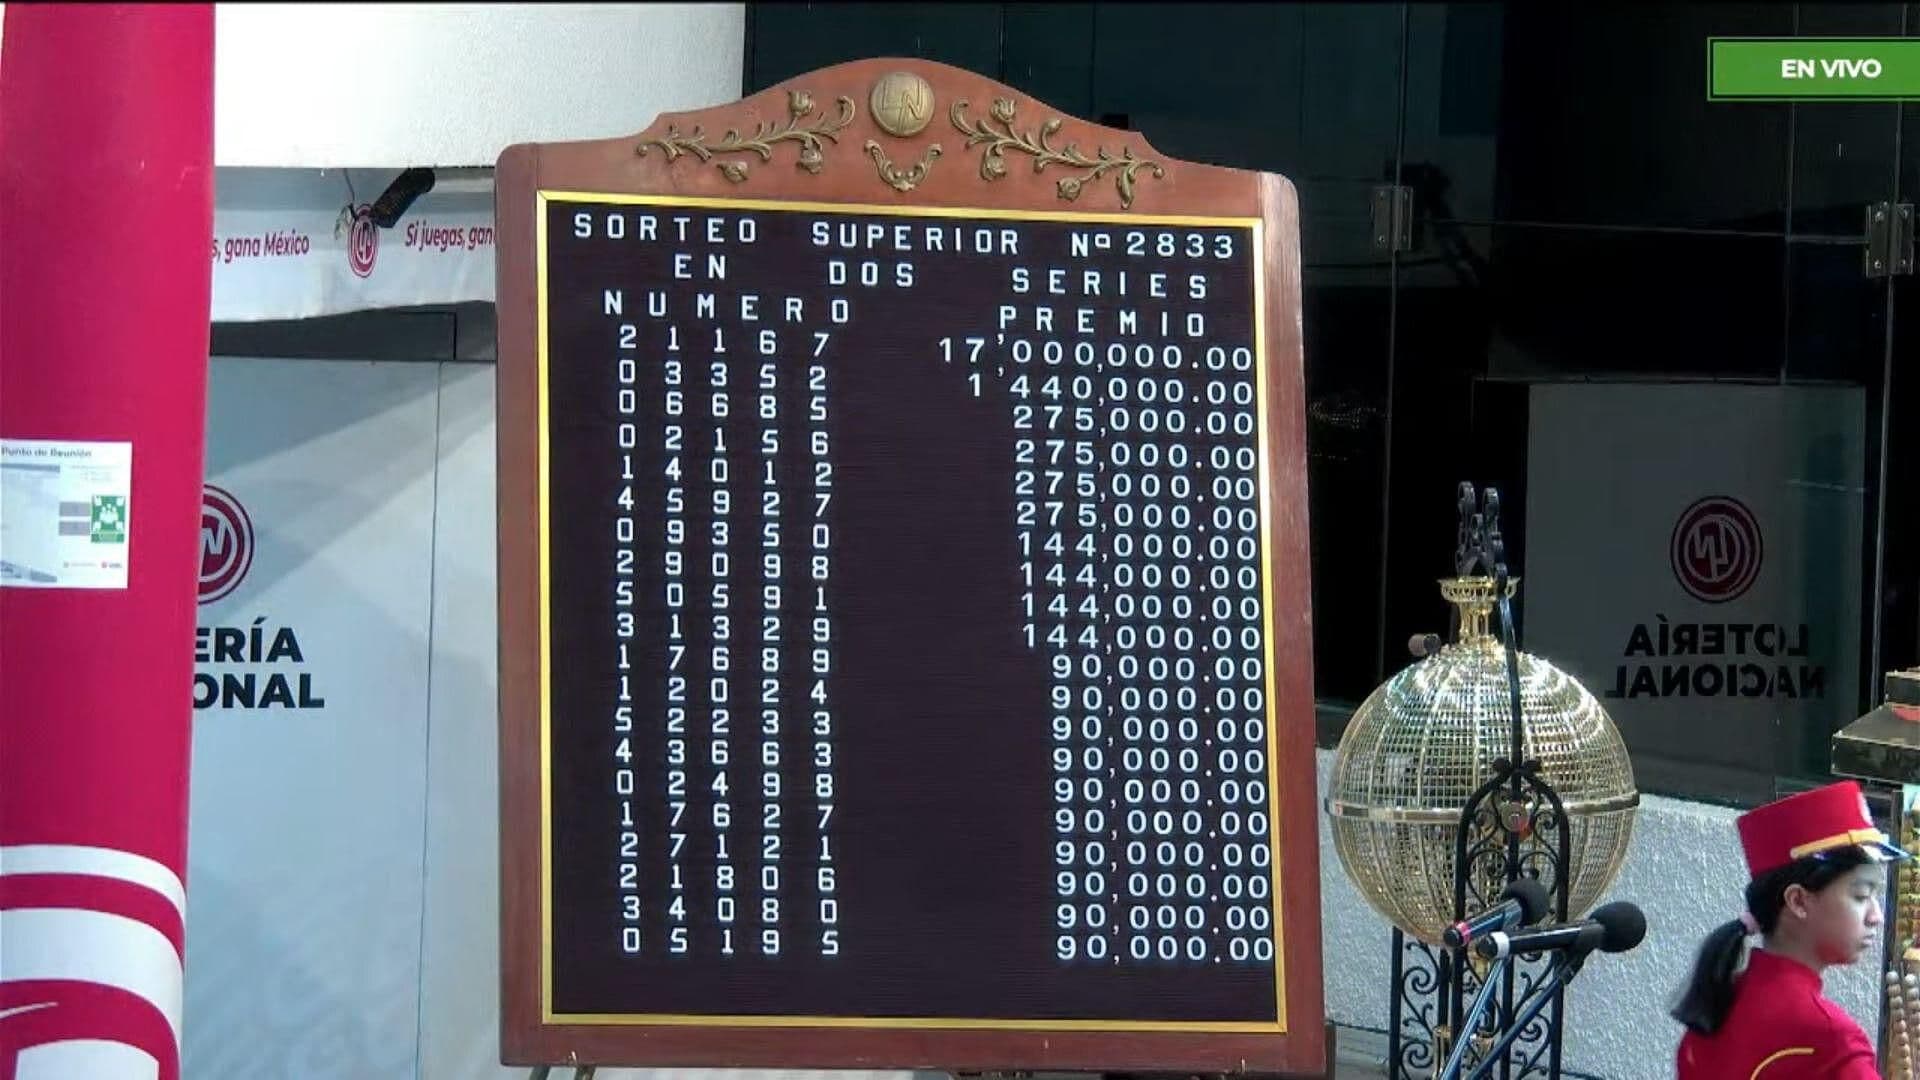 EN VIVO
s, gana México
Si juegas, gan
SORTEO SUPERIOR Nº2833
EN DOS SERIES
NUMERO PREMIO
21167 17'000,000.00
03352 1'440,000.00
06685 275,000.00
02156 275,000.00
14012 275,000.00
45927 275,000.00
09350 144,000.00
29098 144,000.00
50591 144,000.00
31329 144,000.00
17689 90,000.00
12024 90,000.00
52233 90,000.00
43663 90,000.00
02498 90,000.00
17627 90,000.00
27121 90,000.00
21806 90,000.00
34080 90,000.00
05195 90,000.00
Punto de Reunión
ERÍA
ONAL
LOTERÍA
NACIONAL